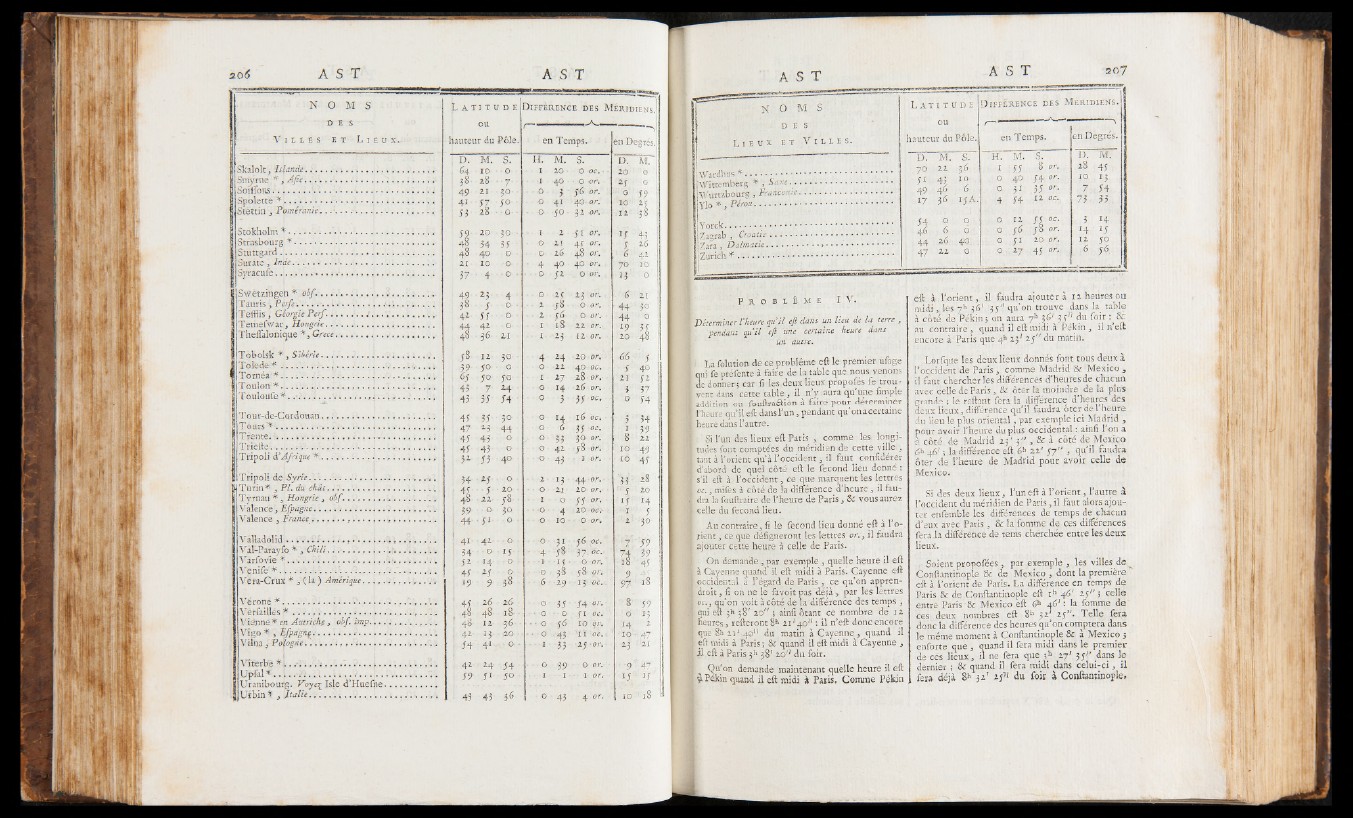 206 AST AST
NOMS
DES
VILLES ET LIEUX.
LATITUDE
ou
hauteur du Pôle.
DIFFÉRENCE DES MÉRIDIENS.
en Temps. en Degrés.
D. M. S. H. M. S. D. M.
Skalolt, Islande. 64 10 0 1 20 0 oc. 20 0
Smyrne *, Asie. 38 28 7 1 40 0 or. 25 0
Soissons. 49 21 30 0 3 56 or. 0 59
Spolette * 41 57 50 0 41 40 or. 10 25
Stettin, Poméranie. 53 28 0 0 50 32 or. 12 38
Stokholm * 59 20 30 1 2 51 or. 15 43
Strasbourg * 48 34 35 0 21 45 or. 5 26
Stuttgard. 48 40 0 0 26 48 or. 6 42
Surate, Inde. 21 10 0 4 40 40 or. 70 10
Syracuse. 37 4 0 0 52 0 or. 13 0
Swetzingen * obs. 49 23 4 0 25 23 or. 6 21
Tauris, Perse. 38 5 0 2 58 0 or. 44 30
Teflis, Géorgie Pers. 42 55 0 2 56 0 or. 44 0
Temeswar, Hongrie. 44 42 0 1 18 22 or. 19 35
Thessalonique *, Grece. 48 36 21 1 23 12 or. 20 48
Tobolsk *, Sibérie. 58 12 30 4 24 20 or. 66 5
Tolede * 39 50 0 0 22 40 oc. 5 40
Tornéa * 65 50 50 1 27 28 or. 21 52
Toulon * 43 7 24 0 14 26 or. 3 37
Toulouse * 43 35 54 0 3 35 oc. 0 54
Tour-de-Cordouan. 45 35 30 0 14 16 oc. 3 34
Tours * 47 23 44 0 6 35 oc. 1 39
Trente. 45 43 0 0 33 30 or. 8 22
Trieste. 45 43 0 0 42 58 or. 10 49
Tripoli d'Afrique * 32 53 40 0 43 1 or. 10 45
Tripoli de Syrie. 34 25 0 2 13 44 or. 33 28
Turin *, Pl. du chât. 45 5 20 0 21 20 or. 5 20
Tyrnau *, Hongrie, obs. 48 22 58 1 0 55 or. 15 14
Valence, Espagne. 39 0 30 0 4 20 oc. 1 5
Valence, France. 44 51 0 0 10 0 or. 2 30
Valladolid. 41 42 0 0 31 56 oc. 7 59
Val-Parayso *, Chili. 34 0 15 4 58 37 oc. 74 39
Varsovie * 52 14 0 1 15 0 or. 18 45
Venise * 45 25 0 0 38 58 or. 9
Vera-Crux *, (la) Amérique. 19 9 38 6 29 15 oc. 97 18
Vérone * 45 26 26 0 35 54 or. 8 59
Versailles * 48 48 18 0 0 51 oc. 0 13
Vienne * en Autriche, obs. imp. 48 12 36 0 56 10 or. 14 2
Vigo *, Espagne. 42 13 20 0 43 11 oc. 10 47
Vilna, Pologne. 54 41 0 1 33 25 or. 23 21
Viterbe * 42 24 54 0 39 0 or. 9 47
Upsal * 59 51 50 1 1 1 or. 15 15
Uranibourg. Voyez Isle d'Huesne.
Urbin *, Italie. 43 43 36 0 43 4 or. 10 18
AST AST 207
NOMS
DES
LIEUX ET VILLES.
LATITUDE
ou
hauteur du Pôle.
DIFFÉRENCE DES MÉRIDIENS.
en Temps. en Degrés.
D. M. S. H. M. S. D. M.
Wardhus * 70 22 36 1 55 8 or. 28 45
Wittemberg *, Saxe. 51 43 10 0 40 54 or. 10 13
Wurtzbourg, Franconie. 49 46 6 0 31 35 or. 7 54
Ylo *, Pérou. 17 36 15A. 4 54 12 oc. 73 33
Yorck. 54 0 0 0 12 55 oc. 3 14
Zagrab, Croatie. 46 6 0 0 56 58 or. 14 15
Zara, Dalmatie. 44 26 40 0 51 20 or. 12 50
Zurich * 47 22 0 0 27 45 or. 6 56
PROBLÊME IV.
Déterminer l'heure qu'il est dans un lieu de la terre,
pendant qu'il est une certaine heure dans
un autre.
La solution de ce problême est le premier usage
qui se présente à faire de la table que nous venons
de donner; car si les deux lieux proposés se trou-
vent dans cette table, il n'y aura qu'une simple
addition ou soustraction à faire pour déterminer
l'heure qu'il est dans l'un, pendant qu'on a certaine
heure dans l'autre.
Si l'un des lieux est Paris, comme les longi-
tudes sont comptées du méridien de cette ville,
tant à l'orient qu'à l'occident, il faut considérer
d'abord de quel côté est le second lieu donné:
s'il est à l'occident, ce que marquent les lettres
oc., mises à côté de la différence d'heure, il fau-
dra la soustraire de l'heure de Paris, & vous aurez
celle du second lieu.
Au contraire, si le second lieu donné est à l'o-
rient, ce que désigneront les lettres or., il faudra
ajouter cette heure à celle de Paris.
On demande, par exemple, quelle heure il est
à Cayenne quand il est midi à Paris. Cayenne est
occidental à l'égard de Paris, ce qu'on appren-
droit, si on ne le savoit pas déjà, par les lettres
oc., qu'on voit à côté de la différence des temps,
qui est 3h 38' 20"; ainsi ôtant ce nombre de 12
heures, resteront 8h 21' 40": il n'est donc encore
que 8h 21' 40" du matin à Cayenne, quand il
est midi à Paris; & quand il est midi à Cayenne,
il est à Paris 3h 38' 20" du soir.
Qu'on demande maintenant quelle heure il est
à Pékin quand il est midi à Paris. Comme Pékin
est à l'orient, il faudra ajouter à 12 heures ou
midi, les 7h 36' 35" qu'on trouve dans la table
à côté de Pékin; on aura 7h 36' 35" du soir: &
au contraire, quand il est midi à Pékin, il n'est
encore à Paris que 4h 23' 25" du matin.
Lorsque les deux lieux donnés sont tous deux à
l'occident de Paris, comme Madrid & Mexico,
il faut chercher les différences d'heures de chacun
avec celle de Paris, & ôter la moindre de la plus
grande; le restant sera la différence d'heures des
deux lieux, différence qu'il faudra ôter de l'heure
du lieu le plus oriental, par exemple ici Madrid,
pour avoir l'heure du plus occidental: ainsi l'on a
à côté de Madrid 23' 3", & à côté de Mexico
6h 46'; la différence est 6h 22' 57", qu'il faudra
ôter de l'heure de Madrid pour avoir celle de
Mexico.
Si des deux lieux, l'un est à l'orient, l'autre à
l'occident du méridien de Paris, il faut alors ajou-
ter ensemble les différences de temps de chacun
d'eux avec Paris, & la somme de ces différences
sera la différence de tems cherchée entre les deux
lieux.
Soient proposées, par exemple, les villes de
Constantinople & de Mexico, dont la première
est à l'orient de Paris. La différence en temps de
Paris & de Constantinople est 1h 46' 25"; celle
entre Paris & Mexico est 6h 46': la somme de
ces deux nombres est 8h 32' 25". Telle sera
donc la différence des heures qu'on comptera dans
le même moment à Constantinople & à Mexico;
ensorte que, quand il sera midi dans le premier
de ces lieux, il ne sera que 3h 27' 35" dans le
dernier; & quand il sera midi dans celui-ci, il
sera déjà 8h 32' 25" du soir à Constantinople.